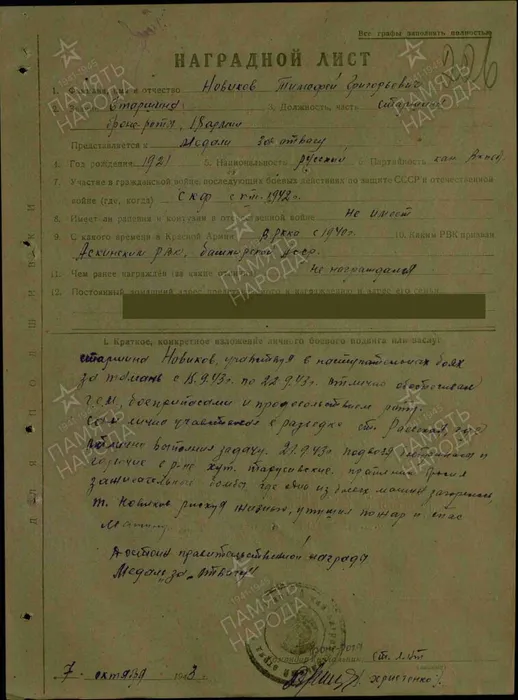 Все графы заполнять полностью
226
НАГРАДНОЙ ЛИСТ
1. Фамилия, имя и отчество Новиков Тимофей Григорьевич
Старшина 3. Должность, часть Старшина
18 армии
Представляется к Медали За отвагу
4. Год рождения 1921 5. Национальность русский 6. Партийность кан.
7. Участие в гражданской войне, последующих боевых действиях по защите СССР и отечественной
войне (где, когда) СКФ с 1942г.
8. Имеет ли ранения и контузии в отечественной войне Не имеет
9. С какого времени в Красной Армии в РККА с 1940г. 10. Каким РВК призван
Аскинским РВК, Башкирской АССР.
11. Чем ранее награжден (за какие отличия) не награждался
12. Постоянный домашний адрес представляемого к награждению и адрес его семьи
1. Краткое, конкретное изложение личного боевого подвига или заслуг
Старшина Новиков, участвуя в наступательных боях
за Тамань с 15.9.43г. по 22.9.43г. отлично обеспечивал
боеприпасами и продовольствием роту.
лично участвовал в разведке ст.
отлично выполнил задачу. 21.9.43г. подвозя боеприпасы и
горючее в р-не хут. противник бросил
зажигательные бомбы, где одна из боевых машин загорелась
т. Новиков рискуя жизнью, утушил пожар и спас
Машину.
Достоин правительственной награды
Медаль "за Отвагу"
ст. л-т
7 октября 1943г. Христенко
ПАМЯТЬ НАРОДА
1941-1945